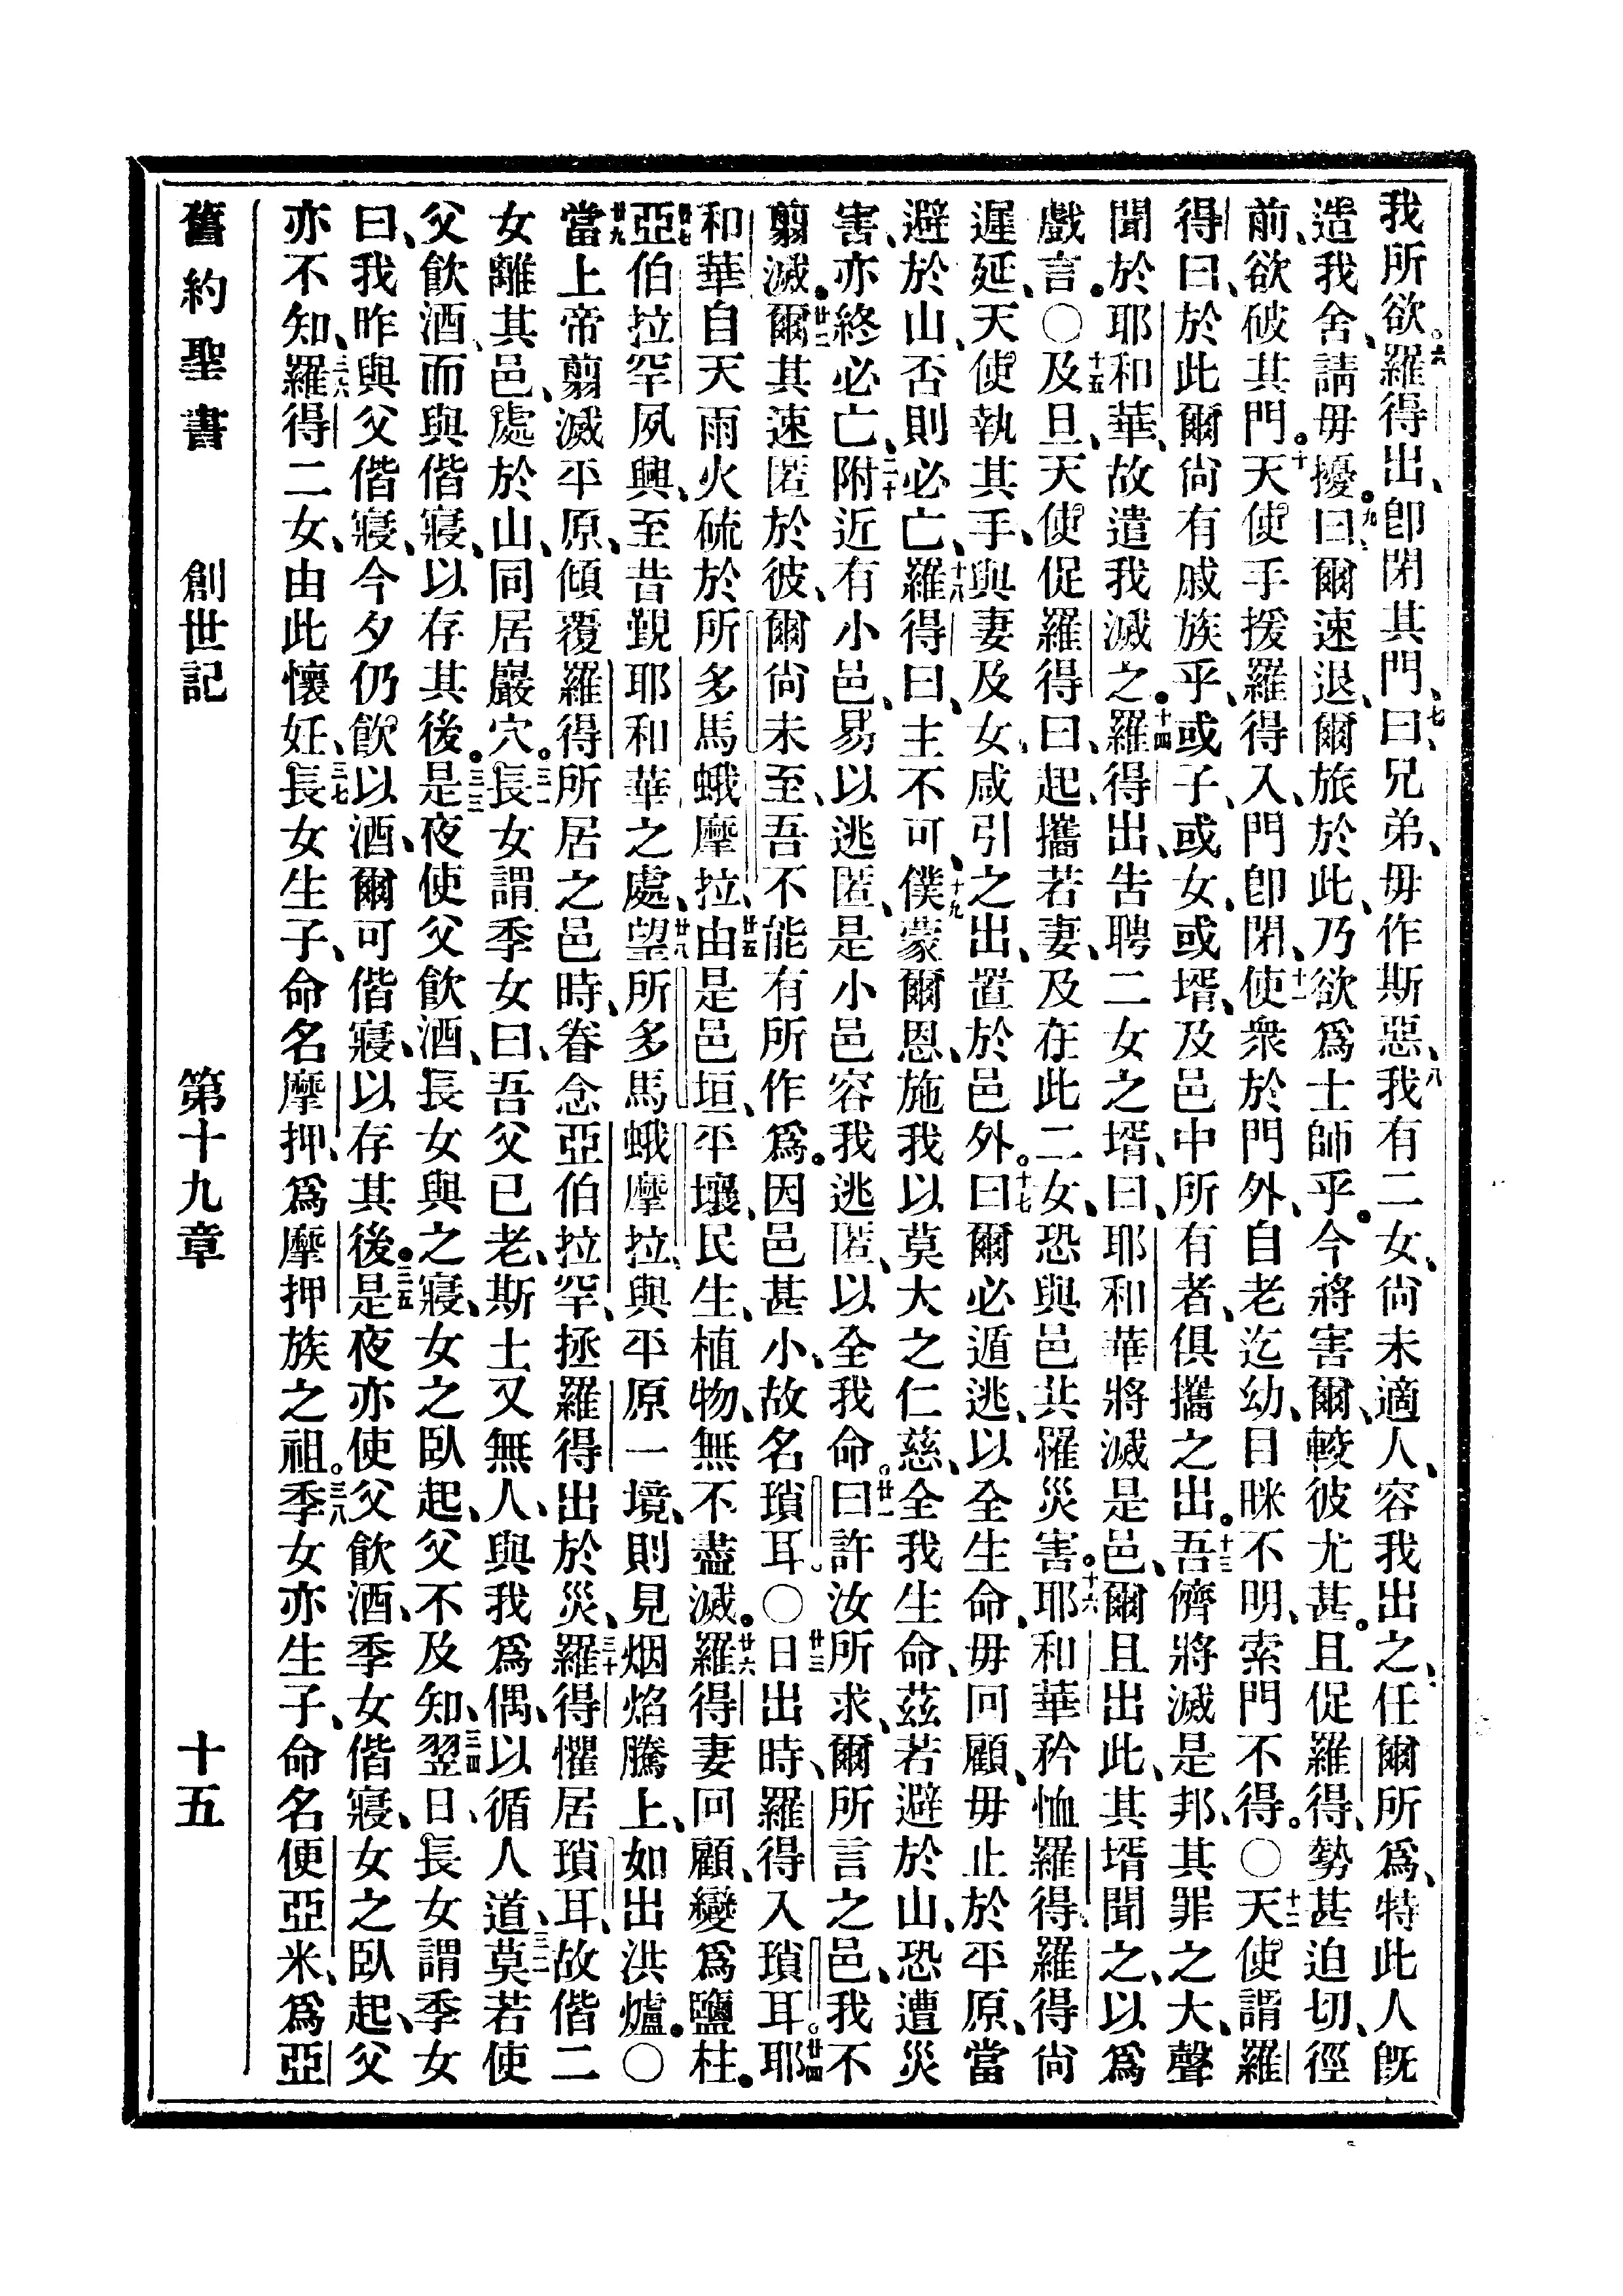 我所欲。六羅得出、卽閉其門、七曰、兄弟、毋作斯惡、八我有二女、尙未適人、容我出之、任爾所爲、特此人旣
造我舍、請毋擾。九曰、爾速退、爾旅於此、乃欲爲士師乎。今將害爾、較彼尤甚。且促羅得、勢甚迫切、徑
前、欲破其門。十天使手援羅得入門、卽閉、十一使衆於門外、自老迄幼、目眯不明、索門不得。〇十二天使謂羅
得曰、於此爾尙有戚族乎、或子、或女、或壻、及邑中所有者、俱攜之出。十三吾儕將滅是邦、其罪之大、聲
聞於耶和華、故遣我滅之。十四羅得出、告聘二女之壻、曰、耶和華將滅是邑、爾且出此、其壻聞之、以爲
戲言。〇十五及旦、天使促羅得曰、起、攜若妻、及在此二女、恐與邑共罹災害。十六耶和華矜恤羅得、羅得尙
遲延、天使執其手、與妻及女、咸引之出、置於邑外。十七曰、爾必遁逃、以全生命、毋回顧、毋止於平原、當
避於山、否則必亡、十八羅得曰、主不可、十九僕蒙爾恩、施我以莫大之仁慈、全我生命、茲若避於山、恐遭災
害、亦終必亡、二十附近有小邑、易以逃匿、是小邑容我逃匿、以全我命。廿一曰、許汝所求、爾所言之邑、我不
翦滅。廿二爾其速匿於彼、爾尙未至、吾不能有所作爲。因邑甚小、故名瑣耳。〇廿三日出時、羅得入瑣耳。廿四耶
和華自天雨火硫於所多馬蛾摩拉、廿五由是邑垣、平壤、民生、植物、無不盡滅。廿六羅得妻回顧、變爲鹽柱。
廿七亞伯拉罕夙興、至昔覲耶和華之處、廿八望所多馬蛾摩拉、與平原一境、則見烟焰騰上、如出洪爐。〇
廿九當上帝翦滅平原、傾覆羅得所居之邑時、眷念亞伯拉罕、拯羅得出於災、三十羅得懼居瑣耳、故偕二
女離其邑、處於山、同居巖穴。三一長女謂季女曰、吾父已老、斯土又無人、與我爲偶、以循人道、三二莫若使
父飮酒、而與偕寢、以存其後。三三是夜使父飮酒、長女與之寢、女之臥起、父不及知、三四翌日、長女謂季女
曰、我昨與父偕寢、今夕仍飮以酒、爾可偕寢、以存其後。三五是夜亦使父飮酒、季女偕寢、女之臥起、父
亦不知、三六羅得二女、由此懷妊、三七長女生子、命名摩押、爲摩押族之祖。三八季女亦生子、命名便亞米、爲亞
舊約聖書 創世記 第十九章 十五